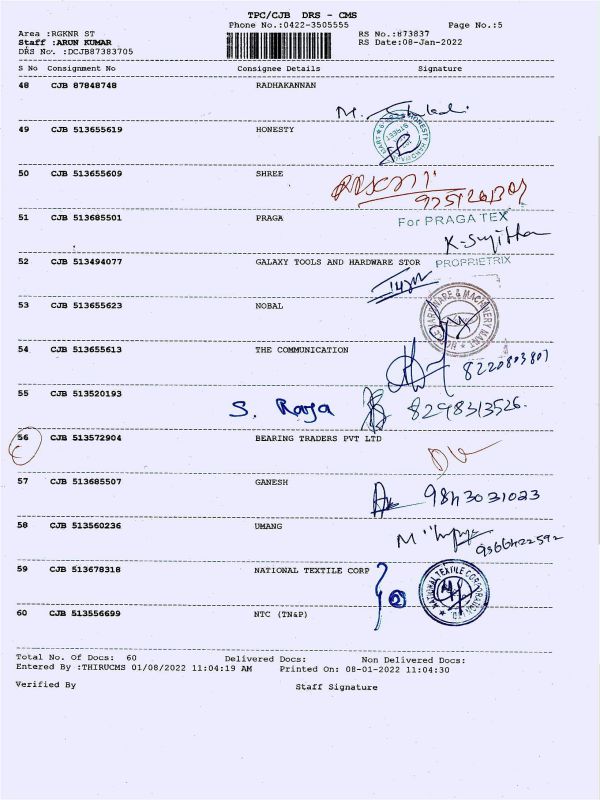 TPC/CJB DRS - CMS
Phone No.:0422-3505555
Page No.:5
Area :RGKNR ST
RS No.:873837
Staff :ARUN KUMAR
RS Date:08-Jan-2022
DRS No. :DCJB87383705
S No Consignment No Consignee Details Signature
48 CJB 87848748 RADHAKANNAN
49 CJB 513655619 HONESTY
50 CJB 513655609 SHREE
51 CJB 513685501 PRAGA
For PRAGA TEX
52 CJB 513494077 GALAXY TOOLS AND HARDWARE STOR
PROPRIETRIX
53 CJB 513655623 NOBAL
54 CJB 513655613 THE COMMUNICATION
8220803807
55 CJB 513520193
S. Raja
8298313526.
56 CJB 513572904 BEARING TRADERS PVT LTD
57 CJB 513685507 GANESH
9843031023
58 CJB 513560236 UMANG
9366422592
59 CJB 513678318 NATIONAL TEXTILE CORP
2
NATIONAL TEXTILE CORPORATION
60 CJB 513556699 NTC (TN&P)
Total No. Of Docs: 60 Delivered Docs: Non Delivered Docs:
Entered By :THIRUCMS 01/08/2022 11:04:19 AM Printed On: 08-01-2022 11:04:30
Verified By Staff Signature